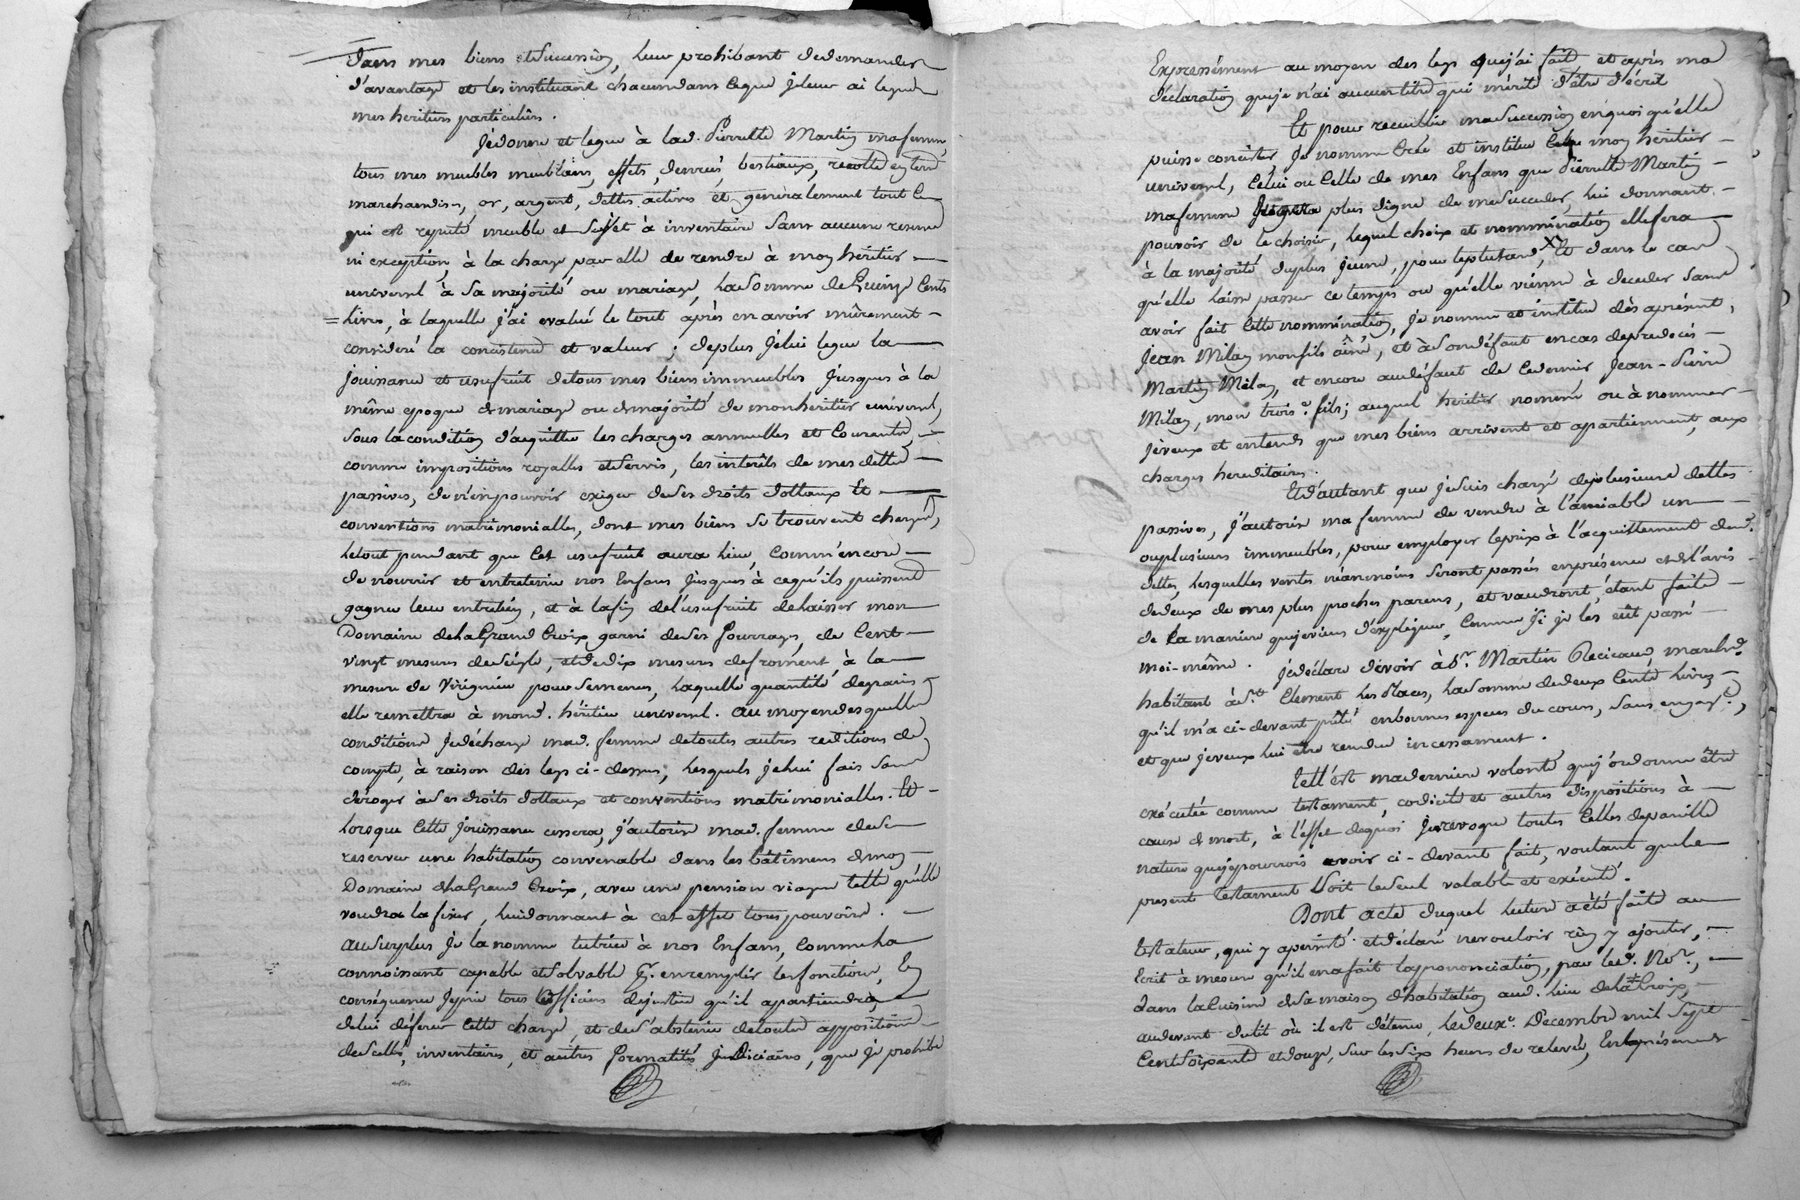 dans mes biens et succession, leur prohibant de demander
d'avantage et les instituant chacun dans ce que je leur ai legué
mes heritiers particuliers.
Je donne et legue à lad. Pierrette Martin ma femme,
tous mes meubles meublans, effets, denrées, bestiaux, recolte
marchandises, or, argent, dettes actives et généralement tout ce
qui est reputé meuble et sujet à inventaire sans aucune reserve
ni exception, à la charge par elle de rendre à mon héritier
universel à sa majorité ou mariage, la somme de Quinze Cents
livres, à laquelle j'ai evalué le tout après en avoir mûrement
consideré la consistence et valeur; deplus je lui legue la
jouissance et usufruit de tous mes biens immeubles jusques à la
même epoque de mariage ou de majorité de mon heritier universel,
sous la condition d'acquitter les charges annuelles et courantes,
comme impositions royalles et servis, les interêts de mes dettes
passives, de n'en pouvoir exiger de ses droits dottaux et
conventions matrimonialles, dont mes biens se trouvent chargés,
le tout pendant que cet usufruit aura lieu, comm'encore
de nourrir et entretenir nos Enfans jusques à cequ'ils puissent
gagner leur entretien, et à la fin de l'usufruit de laisser mon
Domaine de la Grand Croix garni de ses fourrages, de Cent
vingt mesures de seigle, et de dix mesures de froment, à la
mesure de Virignieu pour semences, laquelle quantité de grains
elle remettra à mond. héritier universel. au moyen desquelles
conditions je décharge mad. femme de toutes autres redditions de
compte, à raison des legs ci-dessus, lesquels je lui fais sans
déroger à ses droits dottaux et conventions matrimonialles. Et
lorsque cette jouissance cessera, j'autorise mad. femme de se
reserver une habitation convenable dans les bâtimens de mon
Domaine de la Grand Croix, avec une pension viagere telle qu'elle
voudra la fixer, lui donnant à cet effet tous pouvoirs.
Au surplus je la nomme tutrice à nos Enfans, comme la
connoissant capable et solvable pr. en remplir les fonctions, En
conséquence je prie tous officiers de justice qu'il appartiendra,
de lui déferer cette charge, et de s'abstenir de toutes appositions
de scellés, inventaires, et autres formalités judiciaires, que je prohibe
Expressément au moyen des legs que j'ai fait et après ma
déclaration que je n'ai aucun titre qui mérite d'être décrit
Et pour recueillir ma succession en quoi qu'elle
puisse consister, Je nomme Crée et institue mon héritier
universel, Celui ou Celle de mes Enfans que Pierrette Martin
ma femme plus digne de me succeder, lui donnant
pouvoir de le choisir, lequel choix et nommination elle fera
à la majorité du plus jeune, pour le plus tard, Et dans le cas
qu'elle laisse passer ce temps ou qu'elle vienne à deceder sans
avoir fait cette nommination, je nomme et institue dès à présent,
Jean Milan mon fils aîné, et à son défaut en cas de predecès
Martin Milan, et encore au défaut de ce dernier Jean-Pierre
Milan, mon trois.e fils; auquel heritier nommé ou à nommer
je veux et entends que mes biens arrivent et apartiennent, aux
charges hereditaires.
Et d'autant que je suis chargé de plusieurs dettes
passives, j'autorise ma femme de vendre à l'amiable un
ou plusieurs immeubles, pour employer le prix à l'acquittement desd.
dettes, lesquelles ventes néanmoins seront passées en présence et de l'avis
de deux de mes plus proches parens, et vaudront, étant faites
de la maniere que je viens d'expliquer, comme si je les eût passé
moi-même. Je déclare devoir à Sr. Martin Recicaud marchd.
habitant à St. Clement les Places, la somme de deux Cents livres
qu'il m'a ci-devant prêté en bonnes especes du cours, sans engagt.,
et que je veux lui être rendue incessament.
Tell'est ma derniere volonté que j'ordonne être
exécutée comme testament, codicile et autres dispositions à
cause de mort, à l'effet de quoi je revoque toutes Celles de pareille
nature que je pourrois avoir ci-devant fait, voulant que le
présent testament soit le seul valable et exécuté.
Dont acte duquel lecture a été faite au
testateur, qui y a persisté et déclaré ne vouloir rien y ajouter,
Ecrit à mesure qu'il en a fait la prononciation, par led. Nore.,
dans la Cuisine de sa maison d'habitation aud. lieu de la Gd. Croix,
audevant du lit où il est détenu, le deuxe. Decembre mil Sept
Cent Soixante et douze, sur les six heures de relevée, En présence